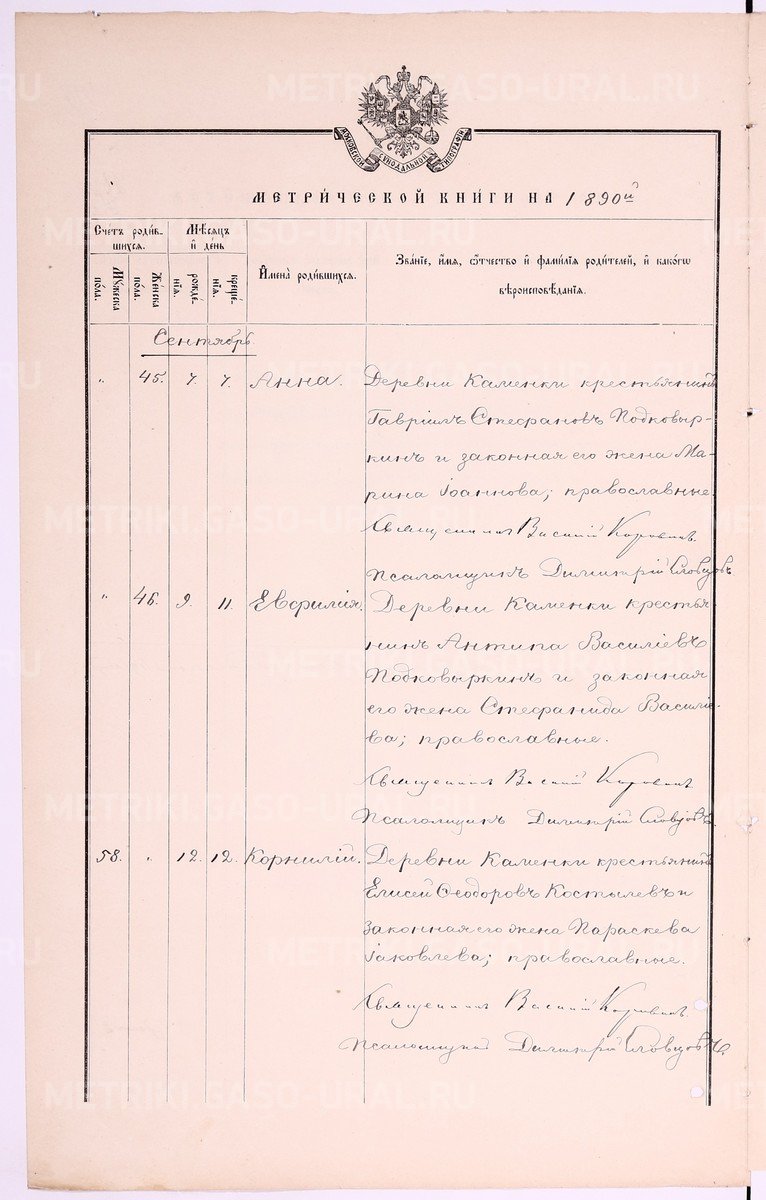 МОСКОВСКОЙ СѴНОДАЛЬНОЙ ТИПОГРАФІИ
МЕТРИ́ЧЕСКОЙ КНИ́ГИ НА 1890й
Сче́тъ роди́в-
шихся.
Мꙋ́жеска по́ла.
Же́нска по́ла.
Мѣ́сяцъ
и҆ де́нь
рожде́-
нїѧ.
креще́-
нїѧ.
И҆мена̀ роди́вшихся.
Зва́нїе, и҆́мя, ѻ҆́тчество и҆ фами́лїѧ роди́телей, и҆ како́гѡ
вѣроисповѣ́данїѧ.
Сентябрь
" 45. 7. 7. Анна. Деревни Каменки крестьянинъ
Гавріилъ Стефановъ Подковыр-
кинъ и законная его жена Ма-
рина Іоаннова; православные.
Священникъ Василій Коровинъ.
Псаломщикъ Димитрій Словцовъ
" 46. 9. 11. Евфимія. Деревни Каменки крестья-
нинъ Антипа Василіевъ
Подковыркинъ и законная
его жена Стефанида Василіе-
ва; православные.
Священникъ Василій Коровинъ
Псаломщикъ Димитрій Словцовъ.
58. " 12. 12. Корнилій. Деревни Каменки крестьянинъ
Елисей Ѳеодоровъ Костылевъ и
законная его жена Параскева
Іаковлева; православные.
Священникъ Василій Коровинъ.
Псаломщикъ Димитрій Словцовъ.
METRIKI.GASO-URAL.RU